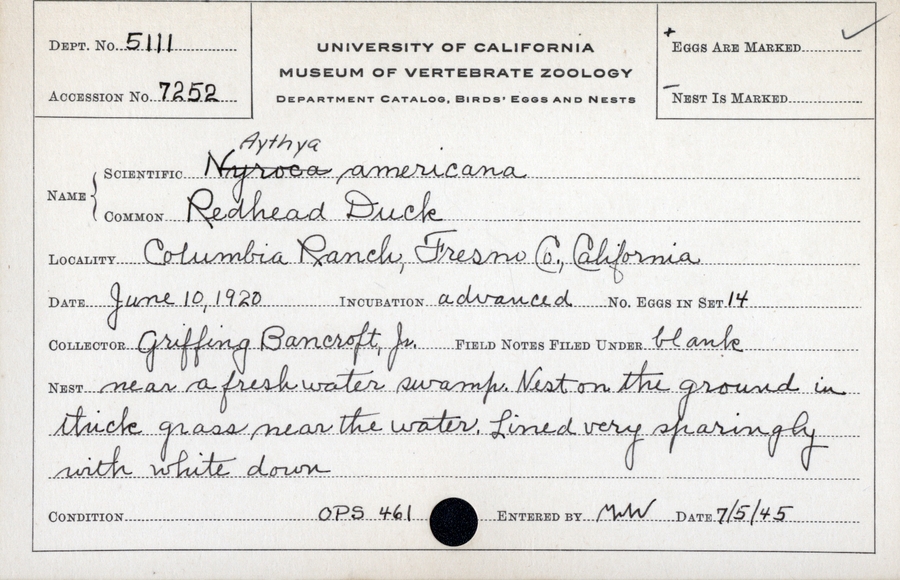 DEPT. NO. 5111
ACCESSION NO. 7252
UNIVERSITY OF CALIFORNIA
MUSEUM OF VERTEBRATE ZOOLOGY
DEPARTMENT CATALOG, BIRDS' EGGS AND NESTS
+ EGGS ARE MARKED ✓
- NEST IS MARKED
Aythya
NAME { SCIENTIFIC Nyroca americana
COMMON Redhead Duck
LOCALITY Columbia Ranch, Fresno Co., California
DATE June 10, 1920 INCUBATION advanced NO. EGGS IN SET 14
COLLECTOR Griffing Bancroft, Jr. FIELD NOTES FILED UNDER blank
NEST near a fresh water swamp. Nest on the ground in
thick grass near the water. Lined very sparingly
with white down
CONDITION OPS 461 ENTERED BY DATE 7/5/45